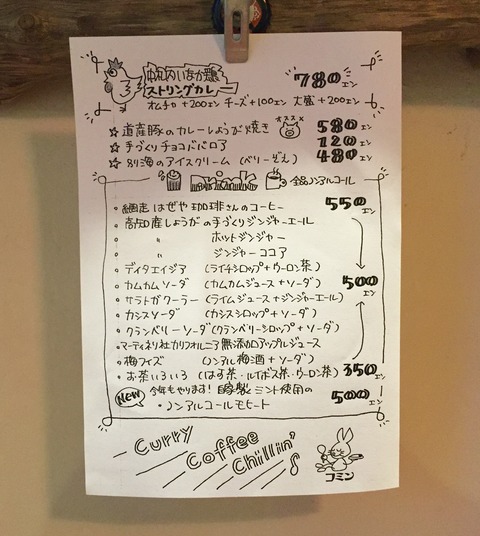 中札内いなか鶏
ストリングカレー 780エン
オムチャ+200エン チーズ+100エン 大盛+200エン
オススメ
☆ 道産豚のカレーしょうが焼き 580エン
☆ 手づくりチョコババロア 120エン
☆ 別海のアイスクリーム (ベリーぞえ) 480エン
Drink 全品ノンアルコール
・網走 はぜや珈琲さんのコーヒー 550エン
・高知産しょうがの手づくりジンジャーエール
〃 ホットジンジャー
〃 ジンジャーココア
・ディタエイジア (ライチシロップ+ウーロン茶)
・カムカムソーダ (カムカムジュース+ソーダ) 500エン
・サラトガクーラー (ライムジュース+ジンジャーエール)
・カシスソーダ (カシスシロップ+ソーダ)
・クランベリーソーダ(クランベリーシロップ+ソーダ)
・マーティネリ社カリフォルニア無添加アップルジュース
・梅フィズ (ノンアル梅酒+ソーダ)
・お茶いろいろ (はす茶・ルイボス茶・ウーロン茶) 350エン
NEW 今年もやります!自家製ミント使用の 500エン
・ノンアルコールモヒート
Curry
Coffee
Chillin'♪
コミン